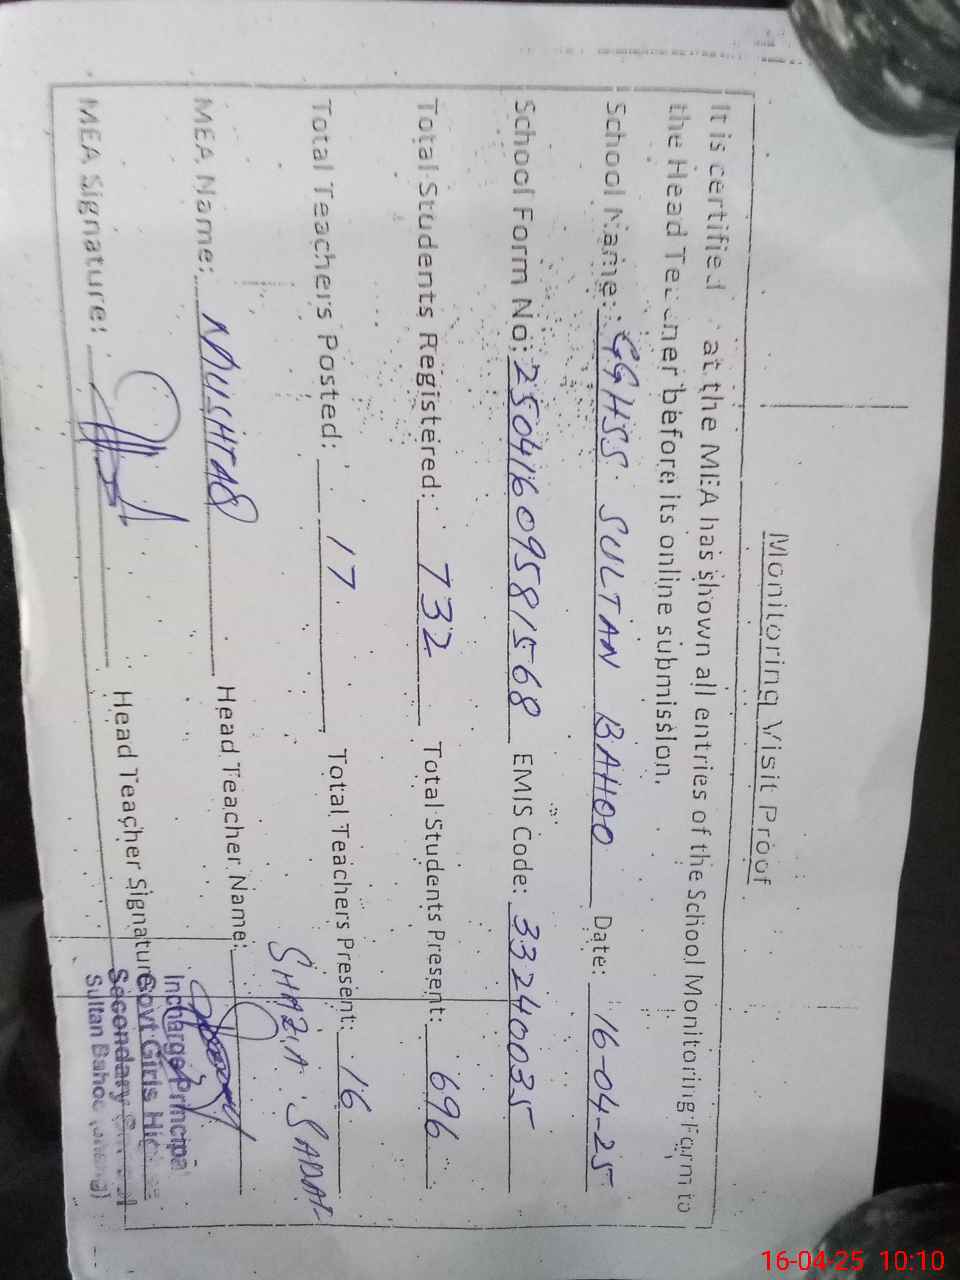 Monitoring Visit Proof
It is certified at the MEA has shown all entries of the School Monitoring Form to
the Head Teacher before its online submission.
School Name: GGHSS SULTAN BAHOO Date: 16-04-25
School Form No: 25041609581568 EMIS Code: 33240035
Total Students Registered: 732 Total Students Present: 696
Total Teachers Posted: 17 Total Teachers Present: 16
MEA Name: MUSHTAQ Head Teacher Name: SHAZIA
MEA Signature: Head Teacher Signature
Incharge Principal
Govt. Girls Higher
Secondary
Sultan Bahoo
16-04-25 10:10